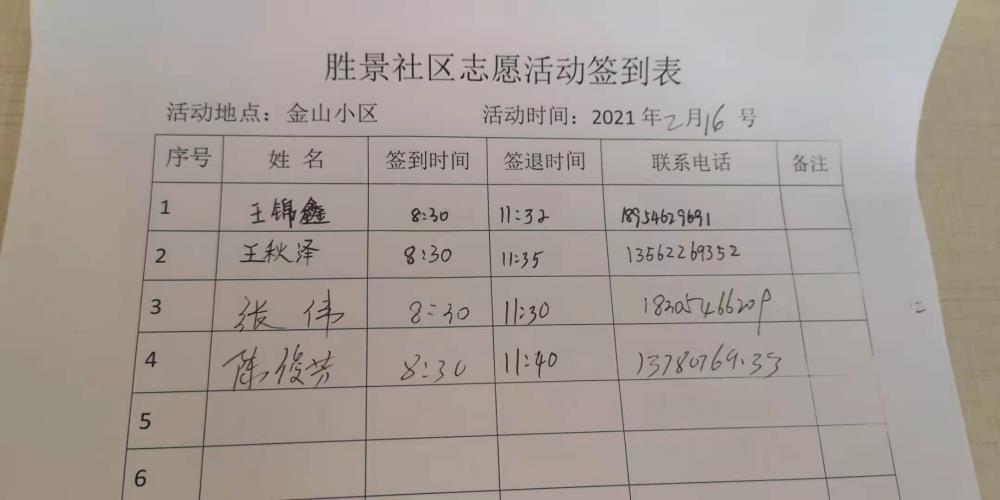 胜景社区志愿活动签到表
活动地点：金山小区 活动时间：2021年2月16号
序号 姓名 签到时间 签退时间 联系电话 备注
1 王锦鑫 8:30 11:32 18954629691
2 王秋泽 8:30 11:35 13562269352
3 张伟 8:30 11:30 18305466209
4 陈俊芳 8:30 11:40
5
6